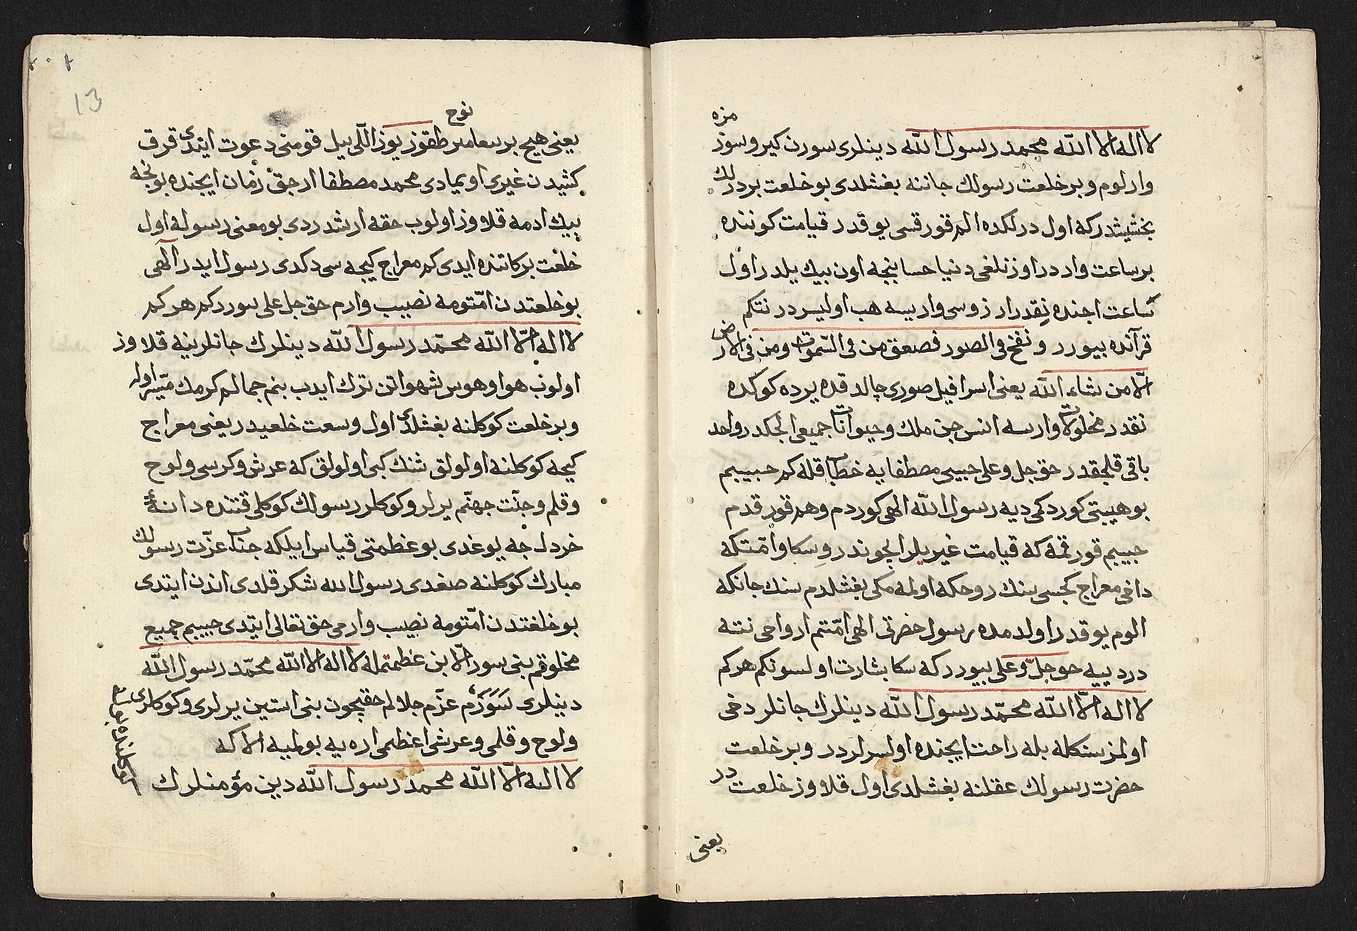 مزه
لا اله الا الله محمد رسول الله دينلرى سورن كيرو سوز
وارلوم و بر خلعت رسولك جاننه بغشلدى بو خلعت بردرلك
بخشيشدركه اول درلكده الم قورقسى يوقدر قيامت كوننده
بر ساعت واردر اوزنلغى دنيا حسابنجه اون بيك يلدر اول
ساعت اجنده نقدر ارزوسى وارسه هب اوليسردر نتكم
قرآنده بيورر ونفخ فى الصور فصعق من فى السموات ومن فى الارض
الا من شاء الله يعنى اسرافيل صورى چالدقده يرده كوكده
نقدر مخلوقات وارسه انس جن ملك و حيوانات جميعى
باقى قلمقدر حق جل وعلى حبيبى مصطفايه خطاب قله كم حبيبم
بو هيبتى كوردكمى ديه رسول الله الهى كوردم وهم قورقدم
حبيبم قورقمه كه قيامت غيريلر ايچوندر و سكا و امتكه
داخى معراج كيجسى سنك روحكه اولمه مكى بغشلدم سنك جانكه
الوم يوقدر اولدمده رسول حضرتى الهى امتم ارواحى نته
درديه حق جل وعلى بيورركه سكا بشارت اولسونكم هركم
لا اله الا الله محمد رسول الله دينلرك جانلر دخى
اولمز سنكله بله راحت ايچنده اولسرلردر و بر خلعت
حضرت رسولك عقلنه بغشلدى اول قلاوز خلعتدر
يعنى
نوح
يعنى هيچ بر پيغامبر طقوز يوز اللى ييل قومنى دعوت ايتدى قرق
كشيدن غيرى اويمادى محمد مصطفا ارحق زمان ايچنده بو نجه
بيك ادمه قلاوز اولوب حقه ارشدردى بو معنى رسوله اول
خلعت بركاتنده ايدى كم معراج كيجه سى دكدى رسول ايدر الهى
بو خلعتدن امتومه نصيب وارم حق جل على بيوردكم هر كم
لا اله الا الله محمد رسول الله دينلرك جانلرينه قلاوز
اولوب هوا و هوس شهواتن ترك ايدب بنم جمالم كرمك ميسر اوله
و بر خلعت كوكلنه بغشلدى اول وسعت خلعيدر يعنى معراج
كيجه كوكلنه اولولق شنك كبى اولولق كه عرش و كرسى و لوح
و قلم و جنت جهنم يرلر و كوكلر رسولك كوكلى قتنده دانهٔ
خردل جه يوغدى بو عظمتى قياس ايلكه جناب عزت رسولك
مبارك كوكلنه صغدى رسول الله شكر قلدى اندن ايتدى
بو خلعتدن امتومه نصيب وارمى حق تعالى ايتدى حبيبم جميع
مخلوقم بنى سور الا بن عظمتمله لا اله الا الله محمد رسول الله
دينلرى سورم عزم جلالم حقيچون بنى استين يرلرى و كوكلرى
و لوح و قلمى و عرشى اعظمى ارديه بولميه الا كه
لا اله الا الله محمد رسول الله دين مؤمنلرك
كوكلنده بوله
13